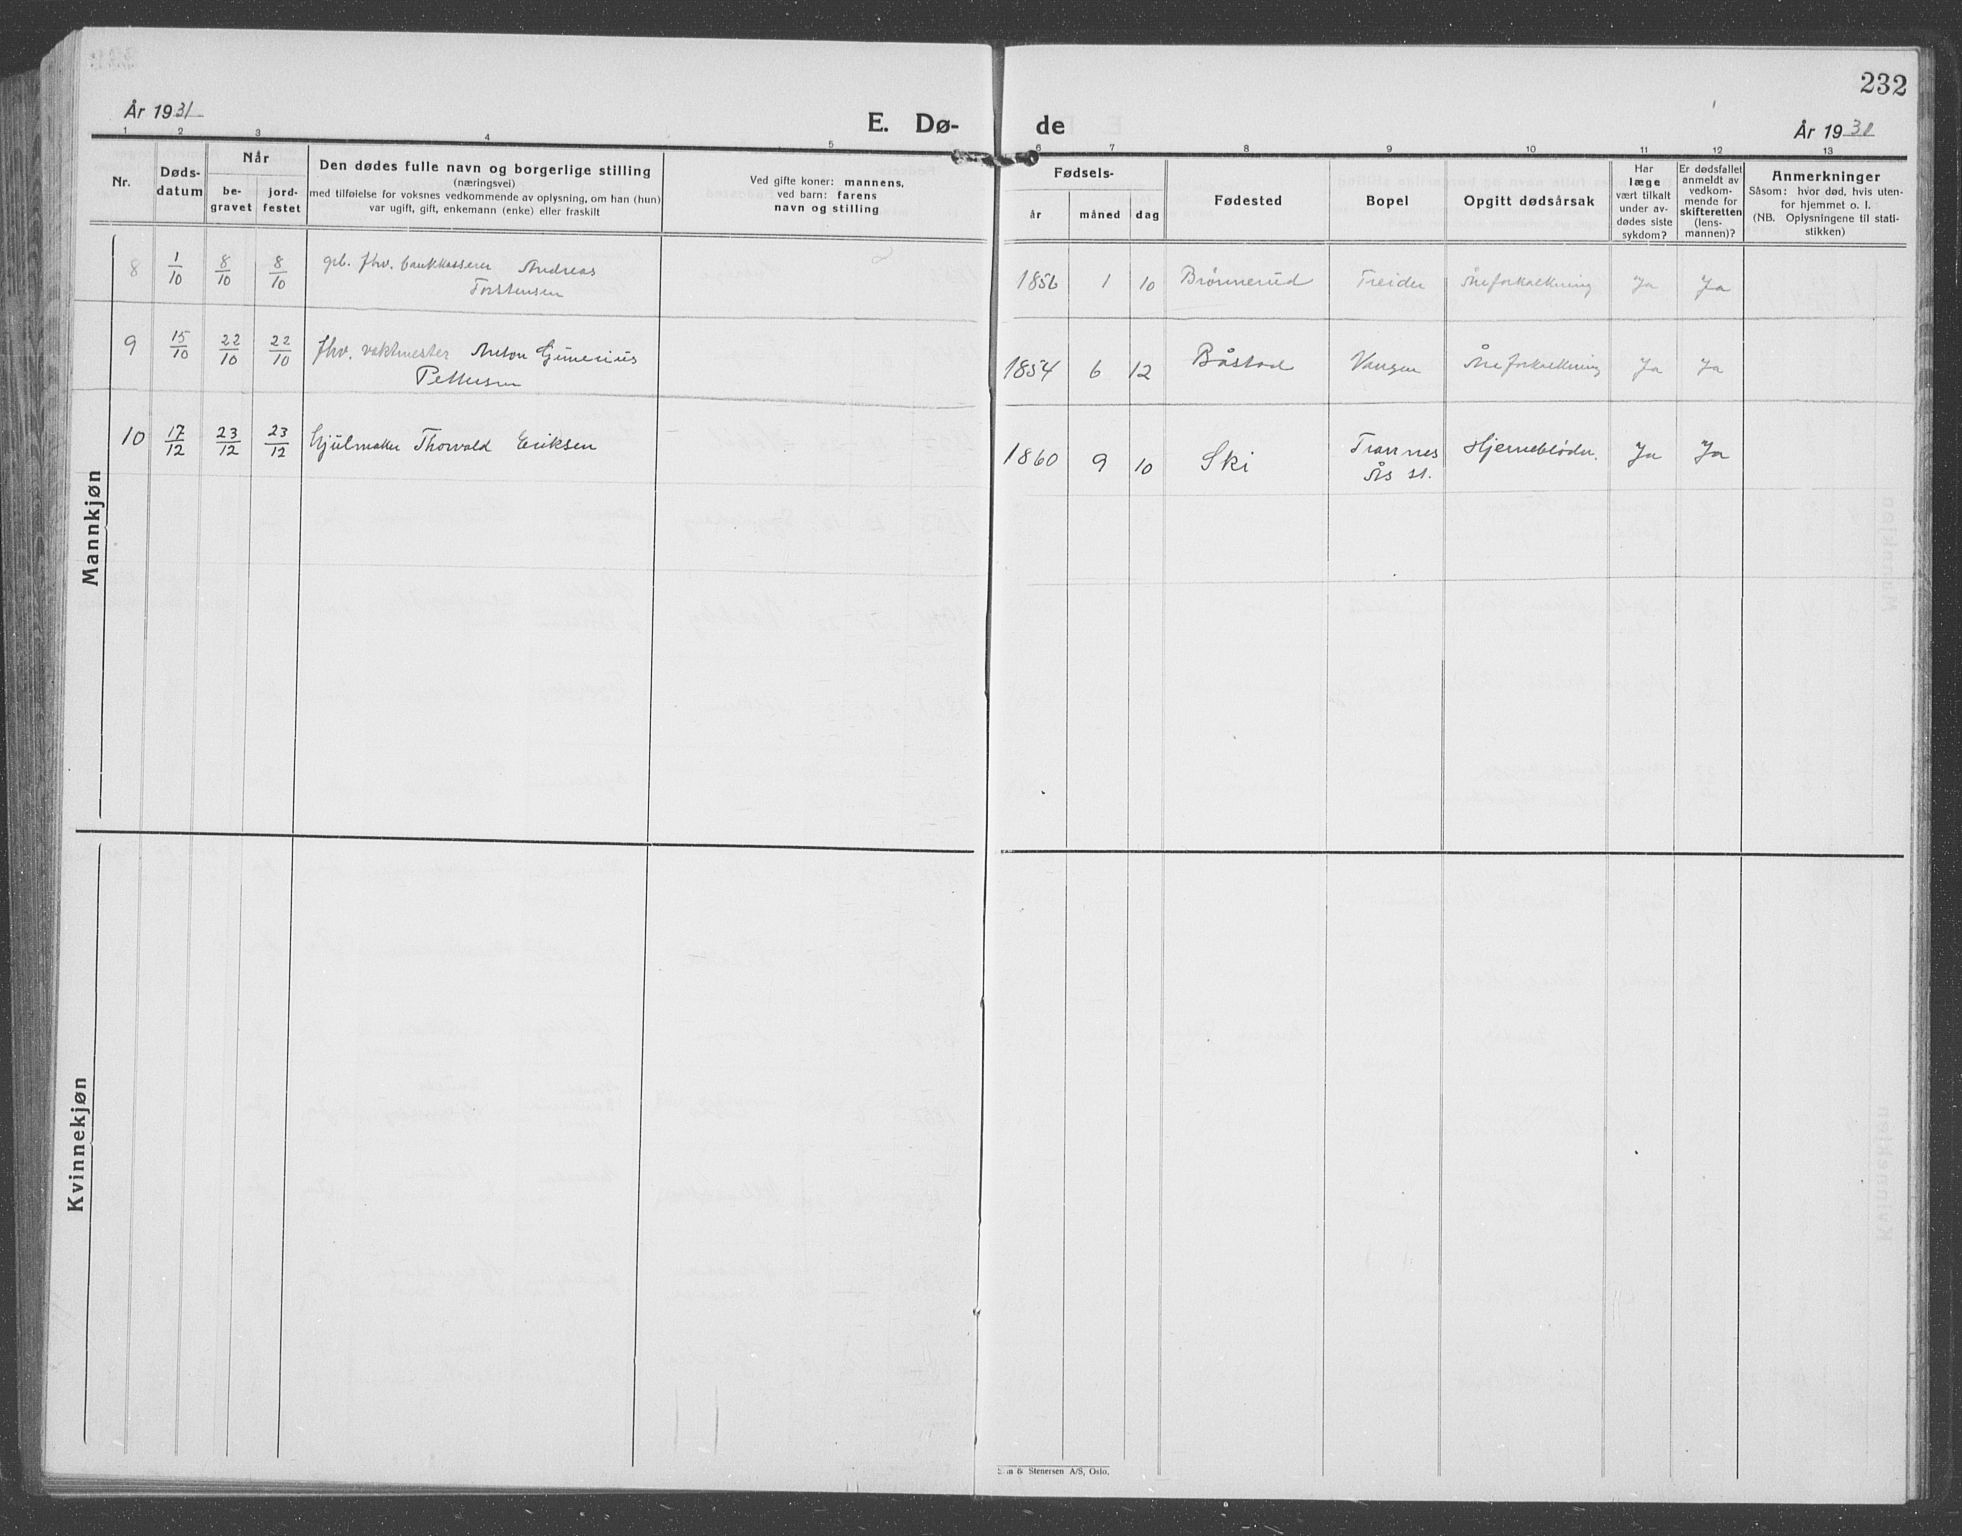 232
År 1931
E. Dø-
de
År 193
1 2 3 4 5 6 7 8 9 10 11 12 13
Nr.
Døds-
datum
Når
be-
gravet
jord-
festet
Den dødes fulle navn og borgerlige stilling
(næringsvei)
med tilføielse for voksnes vedkommende av oplysning, om han (hun)
var ugift, gift, enkemann (enke) eller fraskilt
Ved gifte koner: mannens,
ved barn: farens
navn og stilling
Fødsels-
år
måned
dag
Fødested
Bopel
Opgitt dødsårsak
Har
læge
vært tilkalt
under av-
dødes siste
sykdom?
Er dødsfallet
anmeldt av
vedkom-
mende for
skifteretten
(lens-
mannen)?
Anmerkninger
Såsom: hvor død, hvis uten-
for hjemmet o. l.
(NB. Oplysningene til stati-
stikken)
Mannkjøn
8 1/10 8/10 8/10 fhv. bankkasserer Andreas
Torstensen
1856 1 10 Brønnerud Treider Åreforkalkning Ja Ja
9 15/10 22/10 22/10 fhv. vaktmester Anton Gunerius
Pettersen
1854 6 12 Båstad Vangen Åreforkalkning Ja Ja
10 17/12 23/12 23/12 Hjulmaker Thorvald Eriksen
1860 9 10 Ski Ja Ja
Ås st.
Kvinnekjøn
& Stenersen A/S, Oslo.